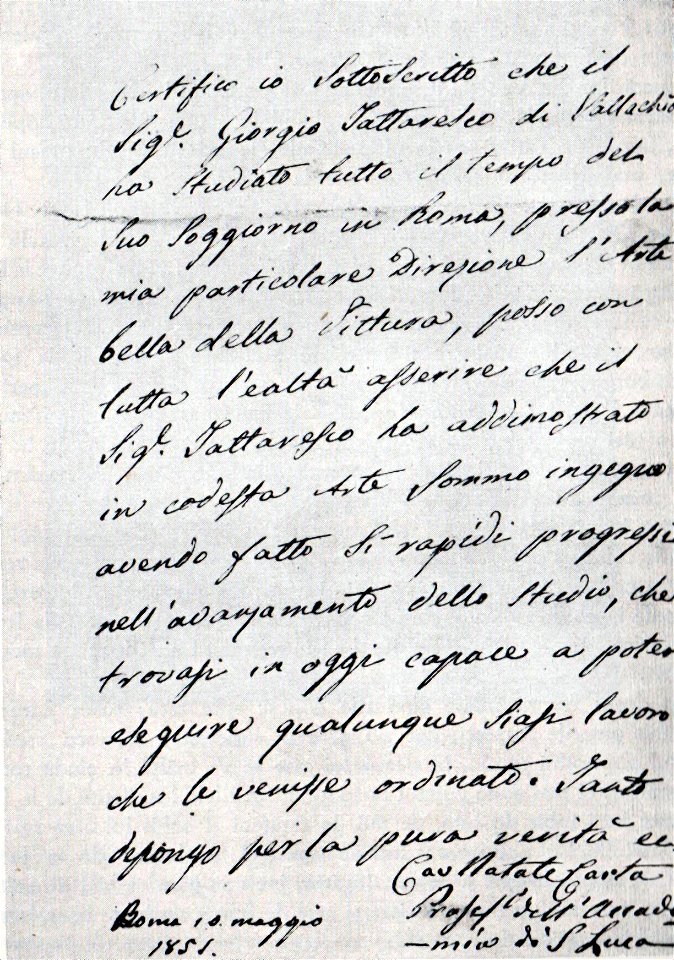 Certifico io Sottoscritto che il
Sigr. Giorgio Tattaresco di Vallachia
ha studiato tutto il tempo del
suo Soggiorno in Roma, presso la
mia particolare Direzione l'Arte
bella della Pittura, posso con
tutta l'ealtà asserire che il
Sigr. Tattaresco ha addimostrato
in codesta Arte Sommo ingegno
avendo fatto Si rapidi progressi
nell'avanzamento dello Studio, che
trovasi in oggi capace a poter
eseguire qualunque siasi lavoro
che le venisse ordinato. Tanto
depongo per la pura verità ec
Cav Natale Carta
Roma 10. maggio
1851.
Profese. dell'Accade
-mia di S Luca